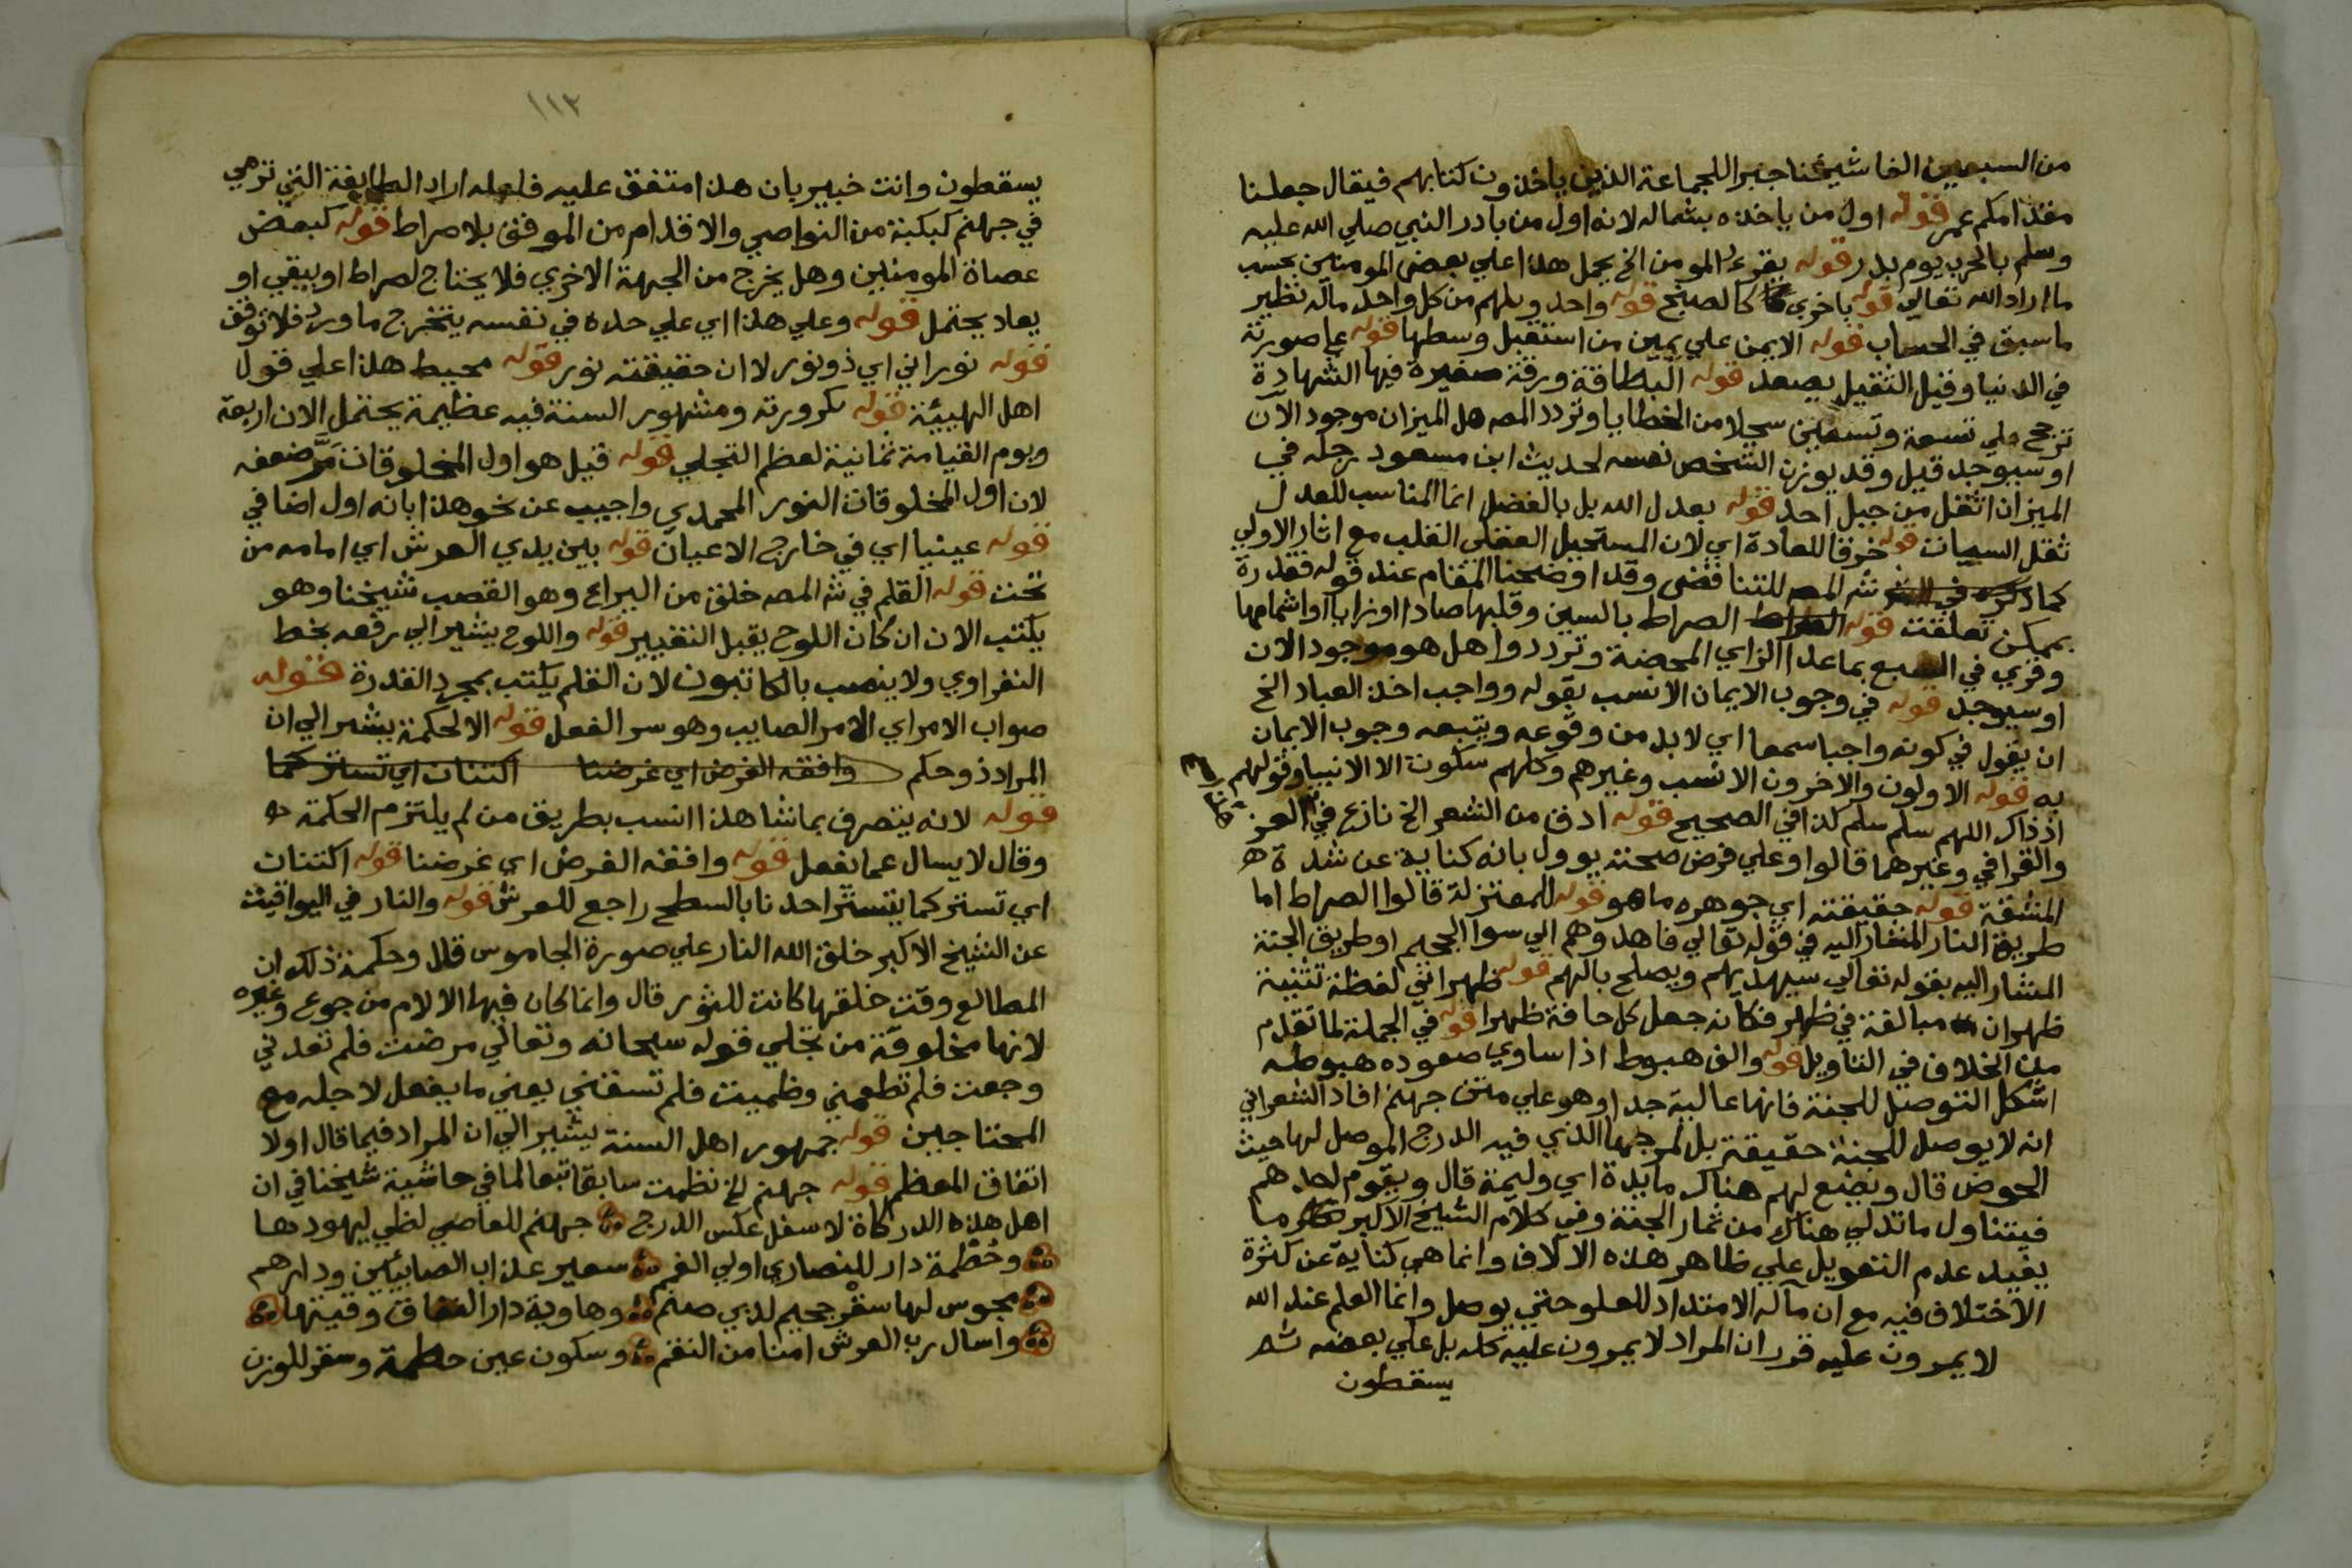 من السبعين الفا شيخنا جبرا للجماعة الذين ياخذون كتابهم فيقال جعلنا
مقدامكم عمر قوله اول من ياخذه بشماله لانه اول من بادر النبي صلي الله عليه
وسلم بالحرب يوم بدر قوله يقرء المومن الخ يحمل هذا علي بعض المومنين بحسب
ما اراد الله تعالي قوله باخري كالصبح قوله واحد ويلهم من كل واحد ماله نظير
ما سبق في الحساب قوله الايمن علي يمين من استقبل وسطها قوله علي صورته
في الدنيا وقيل الثقيل يصعد قوله البطاقة ورقة صغيرة فيها الشهادة
ترجح علي تسعة وتسعين سجلا من الخطايا وتردد المصه هل الميزان موجود الان
او سيوجد قيل وقد يوزن الشخص نفسه لحديث ابن مسعود رجله في
الميزان اثقل من جبل احد قوله بعدل الله بل بالفضل انما المناسب للعدل
ثقل السيات قوله خرقا للعادة اي لان المستحيل العقلي القلب مع اثار الاولي
كما ذكره في شه المصه للتناقض وقد اوضحنا المقام عند قوله فقدرة
بممكن تعلقت قوله الصراط بالسين وقلبها صادا او زايا او اشمامها
وقري في السبع بما عدا الزاي المحضة وترددوا هل هو موجود الان
او سيوجد قوله في وجوب الايمان الانسب بقوله وواجب اخذ العباد الخ
ان يقول في كونه واجبا سمعا اي لابد من وقوعه ويتبعه وجوب الايمان
به قوله الاولون والاخرون الانسب وغيرهم وكلهم سكوت الا الانبيا وقولهم
اذ ذاك اللهم سلم سلم كذا في الصحيح قوله ادق من الشعر الخ نازع في العز
والقرافي وغيرهما قالوا وعلي فرض صحته يوول بانه كناية عن شدة
المشقة قوله حقيقته اي جوهره ما هو قوله المعتزلة قالوا الصراط اما
طريق النار المشار اليه في قوله تعالي فاهدوهم الي سوا الجحيم او طريق الجنة
المشار اليه بقوله تعالي سيهديهم ويصلح بالهم قوله ظهراني لفظة تثنية
ظهران مبالغة في ظهر فكانه جعل كل حافة ظهرا قوله في الجملة لما تقدم
من الخلاف في التاويل قوله والف هبوط اذا ساوي صعوده هبوطه
اشكل التوصل للجنة فانها عالية جدا وهو علي متن جهنم افاد الشعراني
انه لا يوصل للجنة حقيقة بل لمرجها الذي فيه الدرج الموصل لها حيث
الحوض قال ويضع لهم هناك مايدة اي وليمة قال ويقوم احدهم
فيتناول ما تدلي هناك من ثمار الجنة وفي كلام الشيخ الاكبر ما
يفيد عدم التعويل علي ظاهر هذه الالاف وانما هي كناية عن كثرة
الاختلاف فيه مع ان ماله الامتداد للعلو حتي يوصل وانما العلم عند الله
لا يمرون عليه قرر ان المراد لا يمرون عليه كله بل علي بعضه ثم
يسقطون
١١٣
يسقطون وانت خبير بان هذا متفق عليه فلعله اراد الطايفة التي ترمي
في جهنم كبكبة من النواصي والاقدام من الموقف بلا صراط قوله كبعض
عصاة المومنين وهل يخرج من الجهة الاخري فلا يحتاج لصراط او يبقي او
يعاد يحتمل قوله وعلي هذا اي علي حده في نفسه يتخرج ما ورد فلا توقف
قوله نوراني اي ذو نور لا ان حقيقته نور قوله محيط هذا علي قول
اهل الهيئة قوله بكرورته ومشهور السنة فيه عظيمة يحتمل الان اربعة
ويوم القيامة ثمانية لعظم التجلي قوله قيل هو اول المخلوقات مر ضعفه
لان اول المخلوقات النور المحمدي واجيب عن نحو هذا بانه اول اضافي
قوله عينيا اي في خارج الاعيان قوله بين يدي العرش اي امامه من
تحت قوله القلم في شه المصه خلق من اليراع وهو القصب شيخنا وهو
يكتب الان ان كان اللوح يقبل التغيير قوله واللوح يشير الي رفعه بخط
النفراوي ولا ينصب بالكاتبون لان القلم يكتب بمجرد القدرة قوله
صواب الامر اي الامر الصايب وهو سر الفعل قوله الا لحكمة يشير الي ان
المراد ذو حكم وافقه الغرض اي غرضنا اكتنان اي تستر كما
قوله لانه يتصرف بما شا هذا انسب بطريق من لم يلتزم الحكمة
وقال لا يسال عما يفعل قوله وافقه الغرض اي غرضنا قوله اكتنان
اي تستر كما يتستر احدنا بالسطح راجع للعرش قوله والنار في اليواقيت
عن الشيخ الاكبر خلق الله النار علي صورة الجاموس قال وحكمة ذلك ان
المطالع وقت خلقها كانت للثور قال وانما كان فيها الالام من جوع وغيره
لانها مخلوقة من تجلي قوله سبحانه وتعالي مرضت فلم تعدني
وجعت فلم تطعمني وظميت فلم تسقني يعني ما يفعل لاجله مع
المحتاجين قوله جمهور اهل السنة يشير الي ان المراد فيما قال اولا
اتفاق المعظم قوله جهنم الخ نظمت سابقا تبعا لما في حاشية شيخنا في ان
اهل هذه الدركاة لاسفل عكس الدرج جهنم للعاصي لظي ليهودها
وحطمة دار للنصاري اولي الغمم سعير عذاب الصابيين ودارهم
مجوس لها سقر جحيم لذي صنم وهاوية دار النفاق وقيتها
واسال رب العرش امنا من النقم وسكون عين حطمة وسقر للوزن